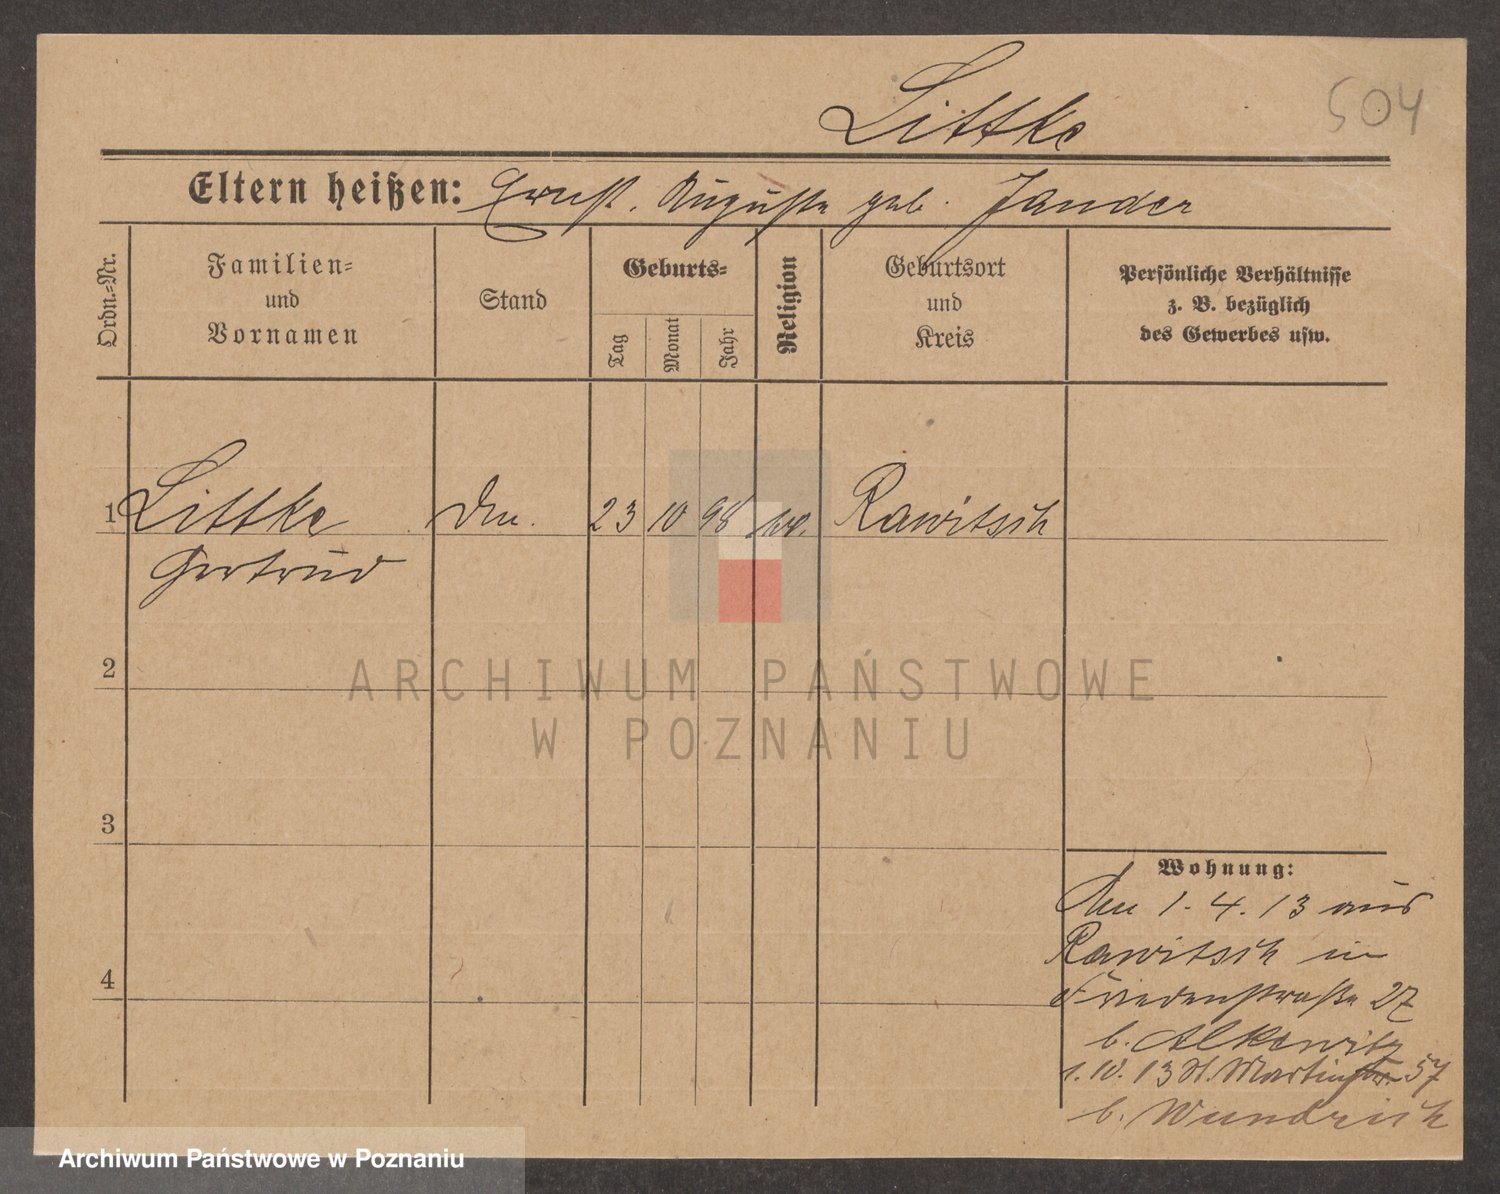 Littke
504
Eltern heißen: Ernst. Auguste geb. Jander
Ordn.-Nr.
Familien-
und
Vornamen
Stand
Geburts-
Tag
Monat
Jahr
Religion
Geburtsort
und
Kreis
Persönliche Verhältnisse
z. B. bezüglich
des Gewerbes usw.
1 Littke 23 10 98 Rawitsch
Gertrud
2
3
4
Wohnung:
Den 1.4.13 aus
Rawitsch in
Friedenstraße 27
b. Alkewitz
1.10.13 St. Martinstr. 57
b. Wundrich
ARCHIWUM PAŃSTWOWE
W POZNANIU
Archiwum Państwowe w Poznaniu